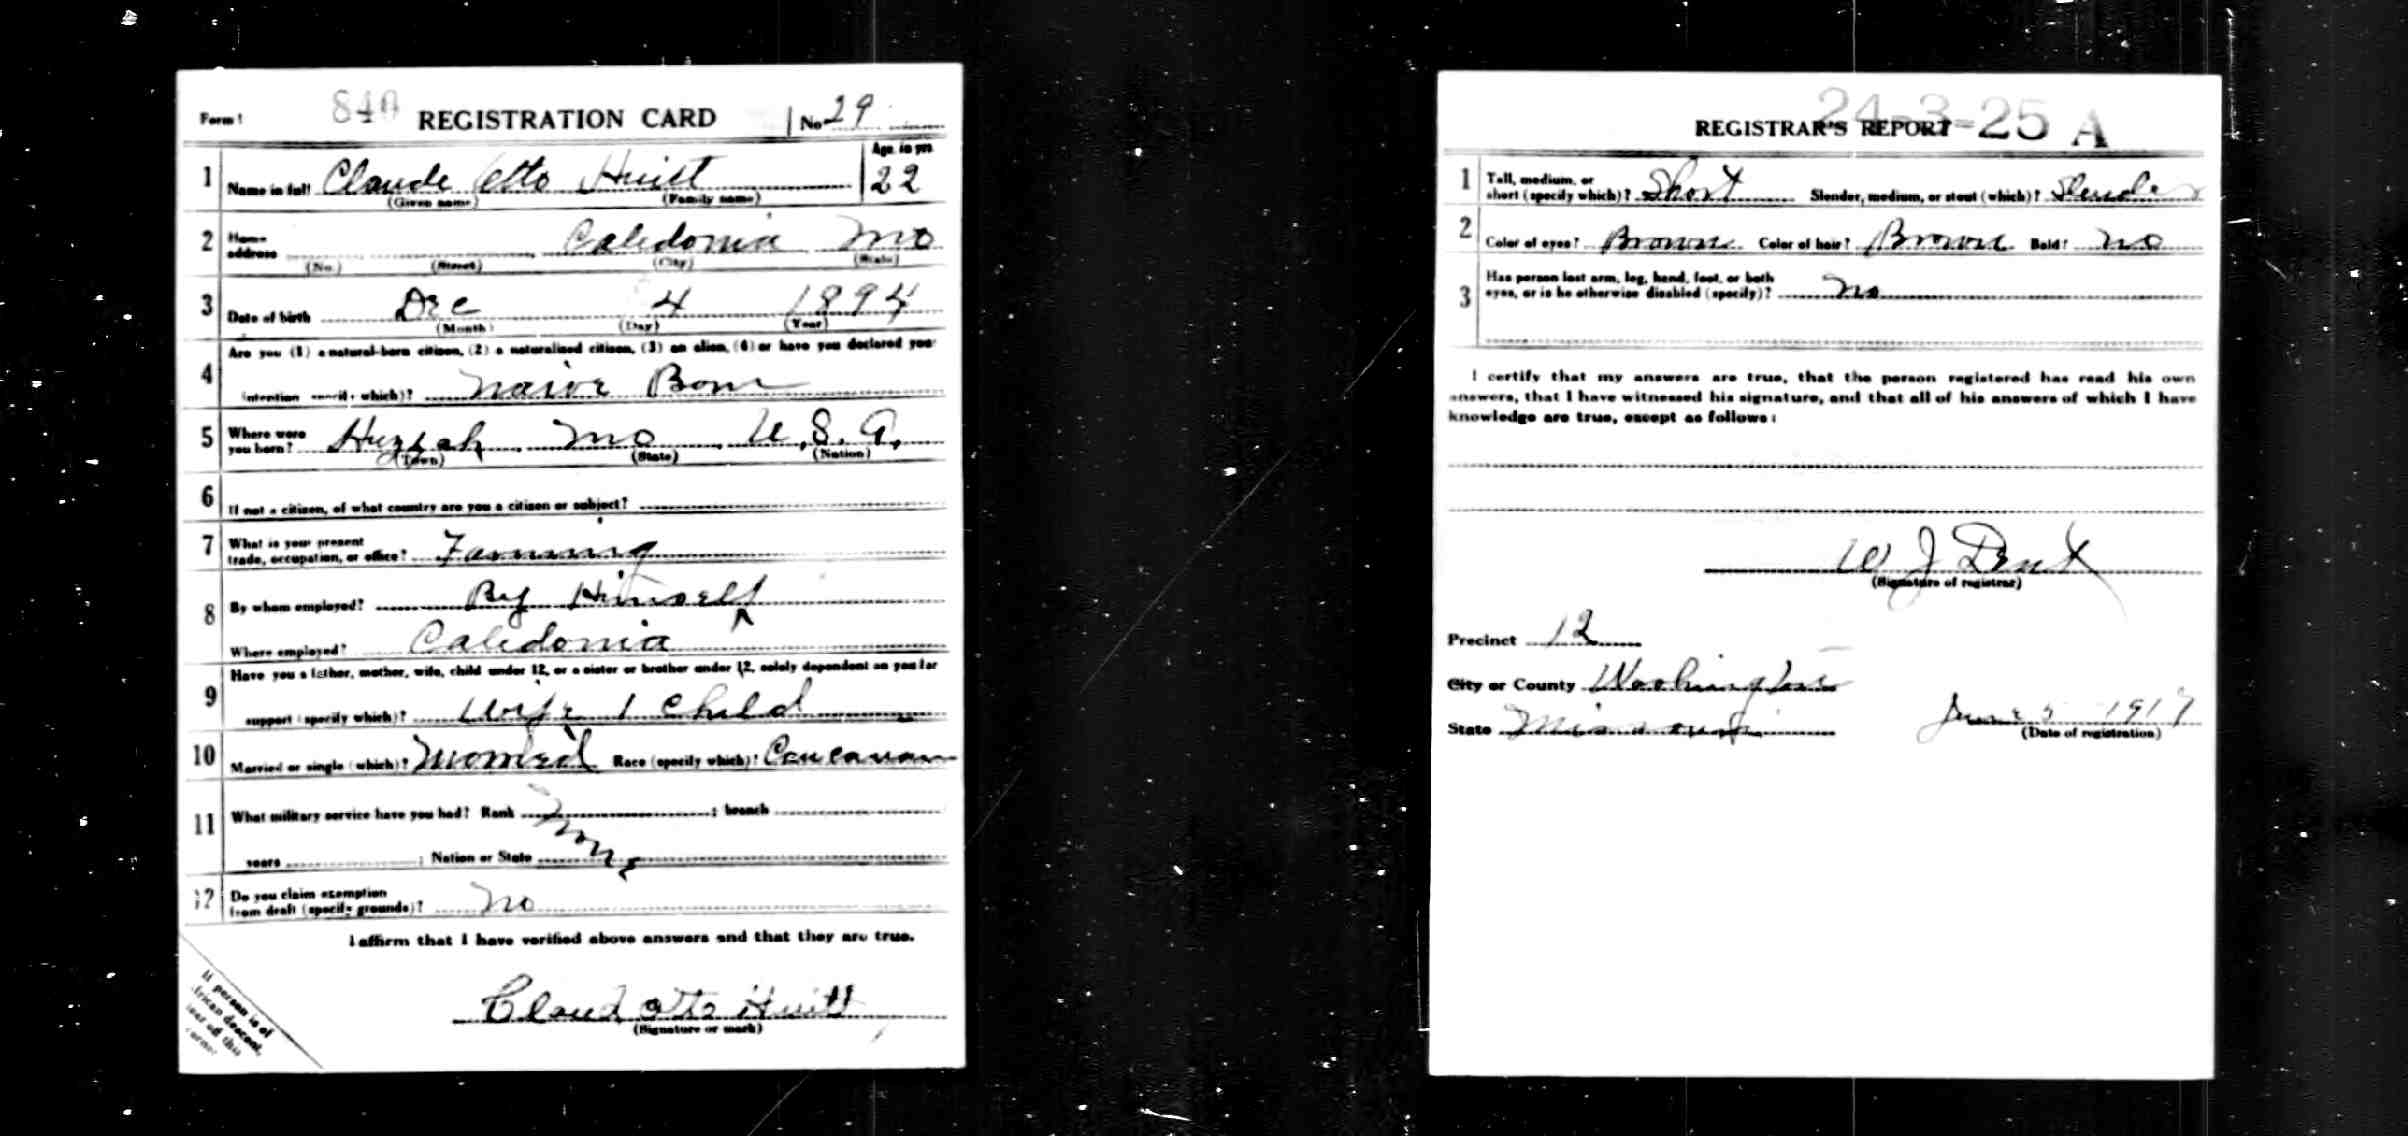 Form 1 840 REGISTRATION CARD No 29
1 Name in full Claude Otto Huitt Age, in yrs 22
(Given name) (Family name)
2 Home address Caledonia Mo
(No.) (Street) (City) (State)
3 Date of birth Dec 4 1894
(Month) (Day) (Year)
4 Are you (1) a natural-born citizen, (2) a naturalized citizen, (3) an alien, (4) or have you declared your
intention (specify which)? Naive Born
5 Where were you born? Huzzah Mo U.S.A.
(Town) (State) (Nation)
6 If not a citizen, of what country are you a citizen or subject?
7 What is your present
trade, occupation, or office? Farming
8 By whom employed? By Himself
Where employed? Caledonia
9 Have you a father, mother, wife, child under 12, or a sister or brother under 12, solely dependent on you for
support (specify which)? Wife 1 Child
10 Married or single (which)? Married Race (specify which)? Caucasian
11 What military service have you had? Rank None ; branch
years ; Nation or State
12 Do you claim exemption
from draft (specify grounds)? No
I affirm that I have verified above answers and that they are true.
Claud Otto Huitt
(Signature or mark)
If person is of
African descent,
tear off this
corner
24-3-25 A
REGISTRAR'S REPORT
1 Tall, medium, or
short (specify which)? Short Slender, medium, or stout (which)? Slender
2 Color of eyes? Brown Color of hair? Brown Bald? No
3 Has person lost arm, leg, hand, foot, or both
eyes, or is he otherwise disabled (specify)? No
I certify that my answers are true, that the person registered has read his own
answers, that I have witnessed his signature, and that all of his answers of which I have
knowledge are true, except as follows:
W J Dent
(Signature of registrar)
Precinct 12
City or County Washington
State Missouri June 5 1917
(Date of registration)